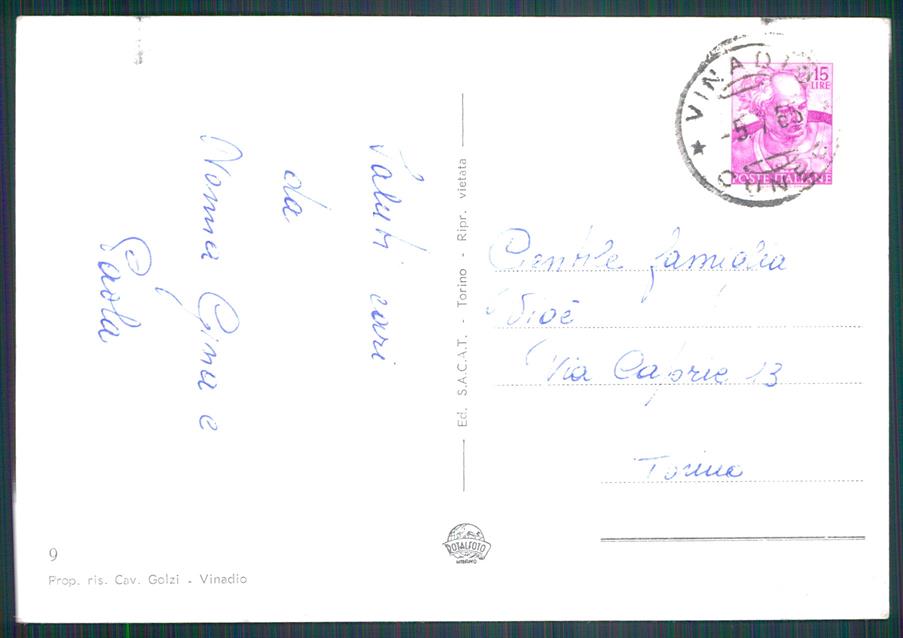 Saluti cari
da
Nonna Gina e
Paola
VINADIO
CUNEO
15
LIRE
POSTE ITALIANE
Gentile famiglia
Via Caprie 13
Torino
Ed. S.A.C.A.T. - Torino - Ripr. vietata
ROTALFOTO
MILANO
9
Prop. ris. Cav. Golzi - Vinadio